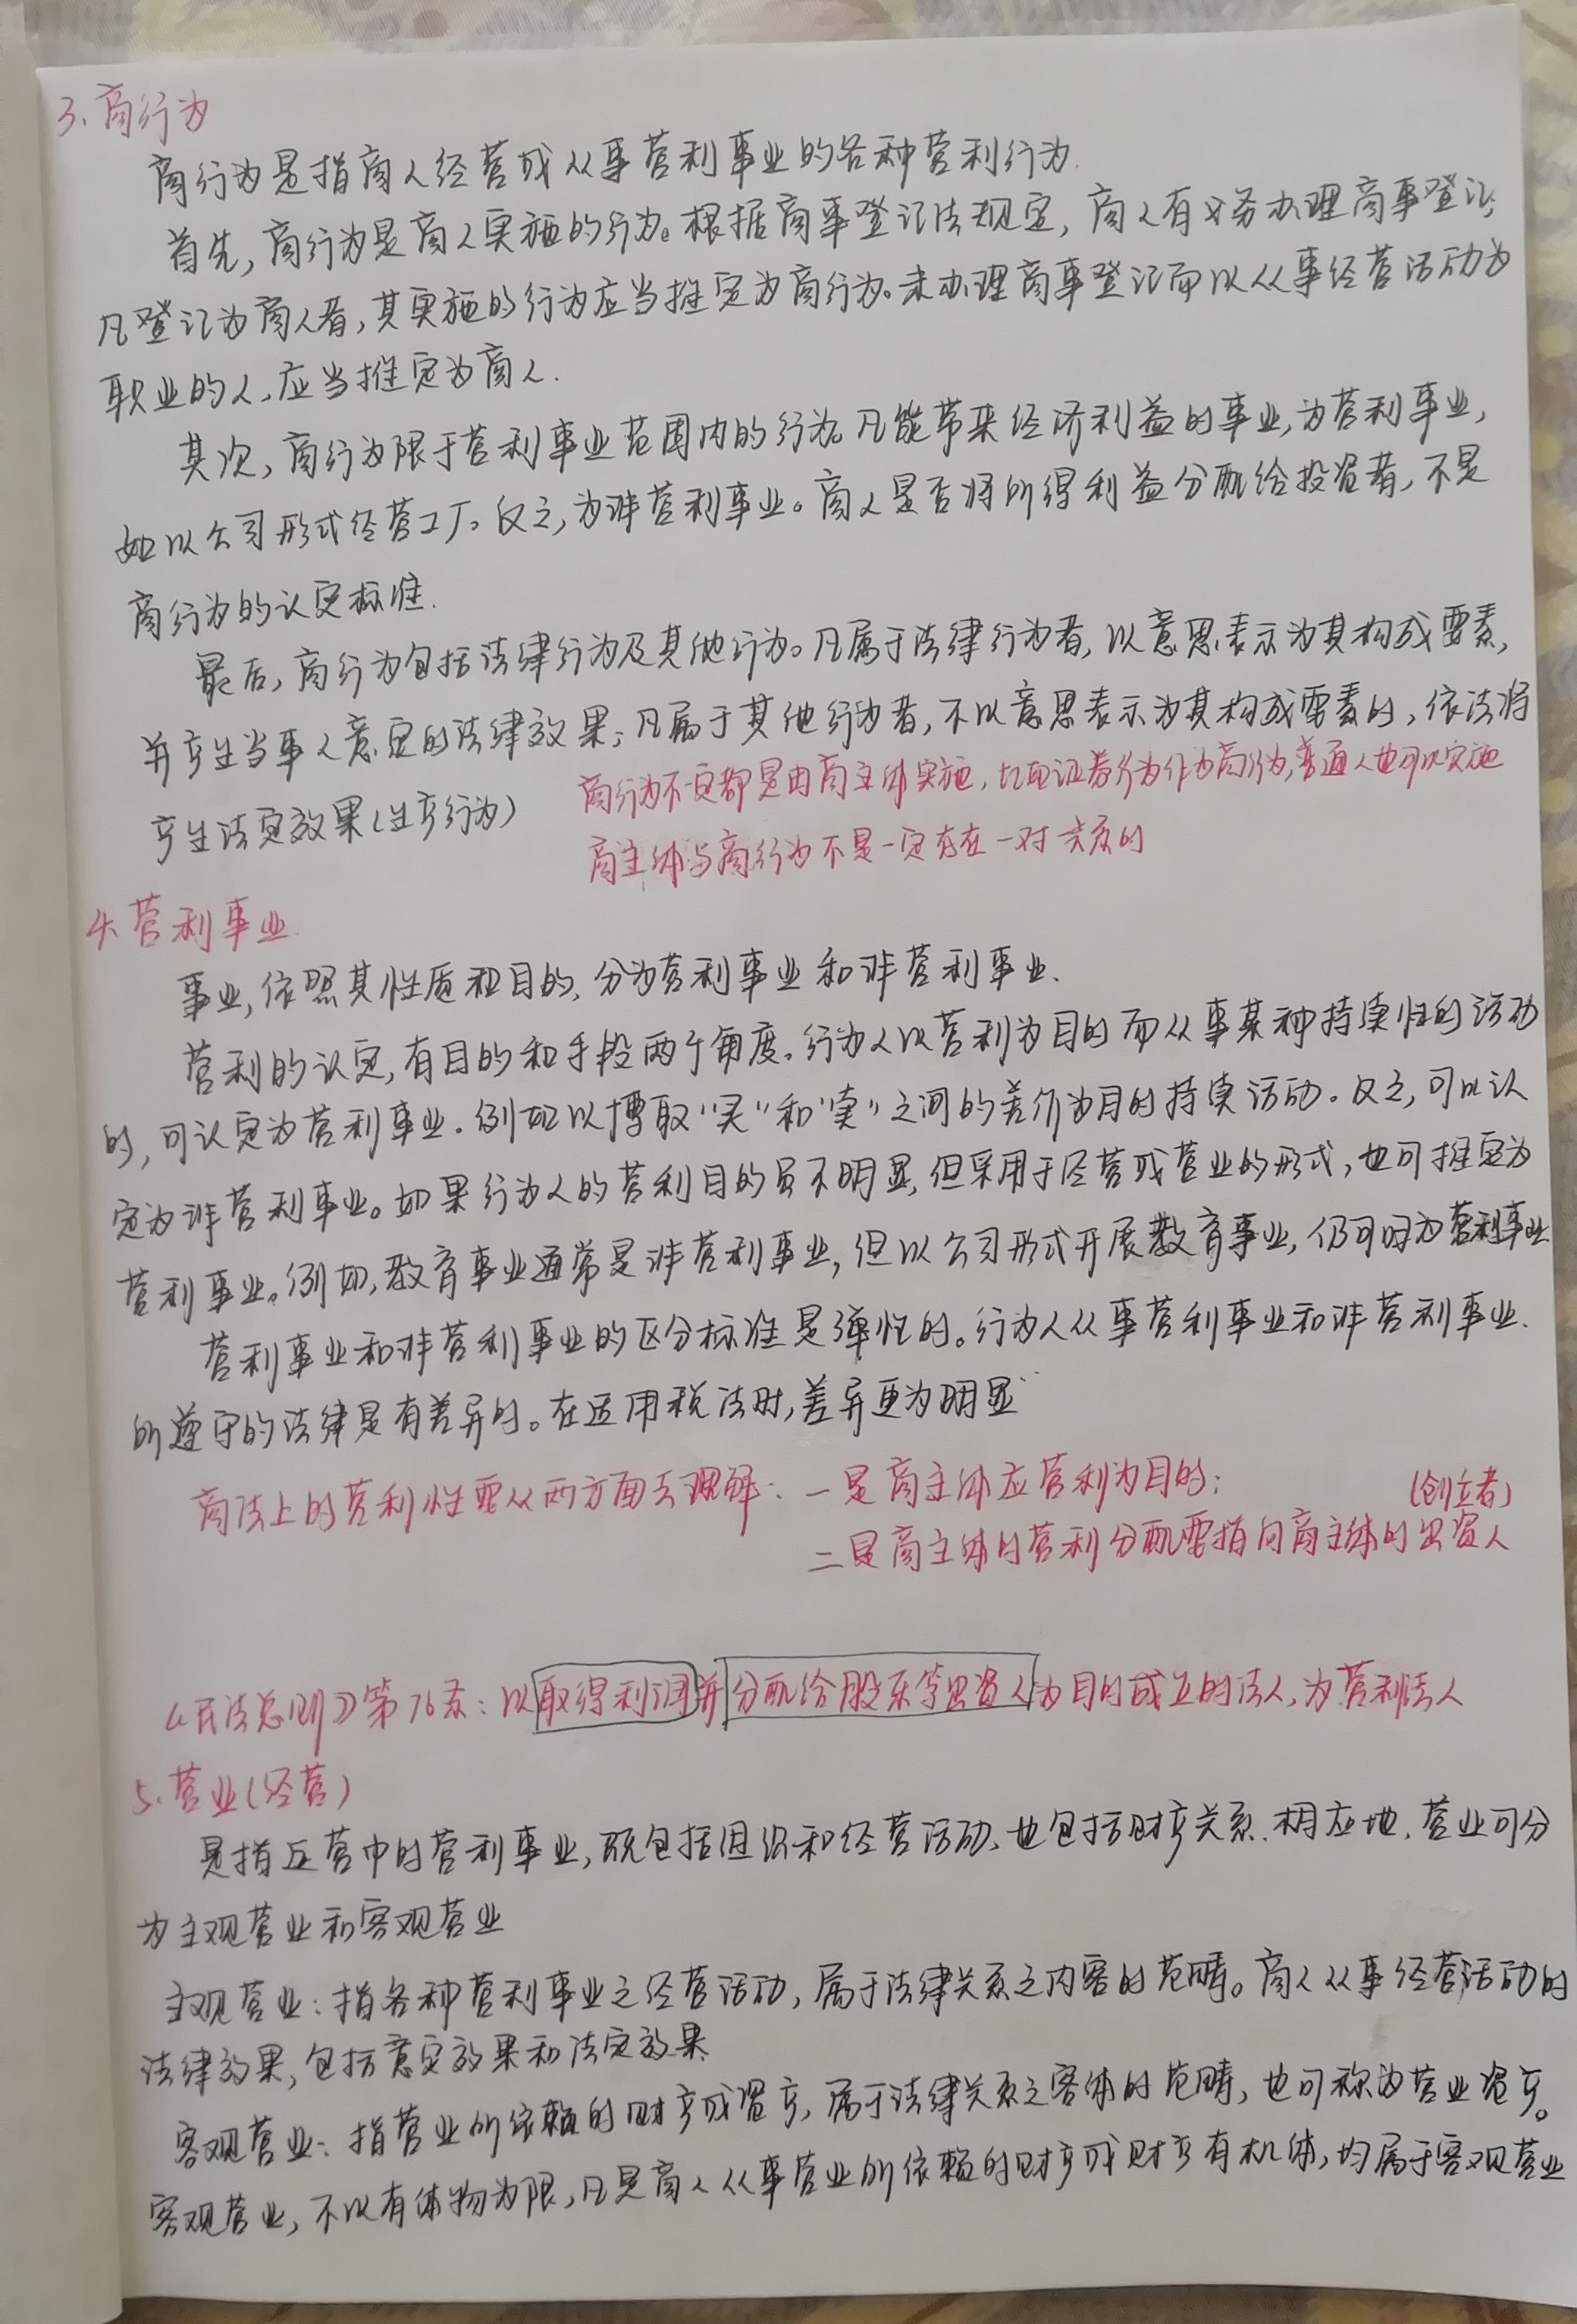 3、商行为
商行为是指商人经营或从事营利事业的各种营利行为.
首先,商行为是商人实施的行为。根据商事登记法规定,商人有义务办理商事登记,
凡登记为商人者,其实施的行为应当推定为商行为。未办理商事登记而以从事经营活动为
职业的人,应当推定为商人.
其次,商行为限于营利事业范围内的行为。凡能带来经济利益的事业,为营利事业,
如以公司形式经营工厂。反之,为非营利事业。商人是否将所得利益分配给投资者,不是
商行为的认定标准.
最后,商行为包括法律行为及其他行为。凡属于法律行为者,以意思表示为其构成要素,
并产生当事人意定的法律效果;凡属于其他行为者,不以意思表示为其构成要素的,依法将
产生法定效果(生产行为)
商行为不一定都是由商主体实施,比如证券行为作为商行为,普通人也可以实施
商主体与商行为不是一定存在一对关系的
4、营利事业.
事业,依照其性质和目的,分为营利事业和非营利事业.
营利的认定,有目的和手段两个角度。行为人以营利为目的而从事某种持续性的活动
的,可认定为营利事业.例如以博取“买”和“卖”之间的差价为目的持续活动。反之,可以认
定为非营利事业。如果行为人的营利目的虽不明显,但采用于经营或营业的形式,也可推定为
营利事业。例如,教育事业通常是非营利事业,但以公司形式开展教育事业,仍可归为营利事业
营利事业和非营利事业的区分标准是弹性的。行为人从事营利事业和非营利事业.
所遵守的法律是有差异的。在适用税法时,差异更为明显
商法上的营利性要从两方面去理解:一是商主体应营利为目的;
(创立者)
二是商主体的营利分配要指向商主体的出资人
《民法总则》第76条:以取得利润并分配给股东等出资人为目的成立的法人,为营利法人
5、营业(经营)
是指运营中的营利事业,既包括组织和经营活动,也包括财产关系.相应地,营业可分
为主观营业和客观营业
主观营业:指各种营利事业之经营活动,属于法律关系之内容的范畴。商人从事经营活动的
法律效果,包括意定效果和法定效果
客观营业:指营业所依赖的财产或资产,属于法律关系之客体的范畴,也可称为营业资产。
客观营业,不以有体物为限,凡是商人从事营业所依赖的财产或财产有机体,均属于客观营业